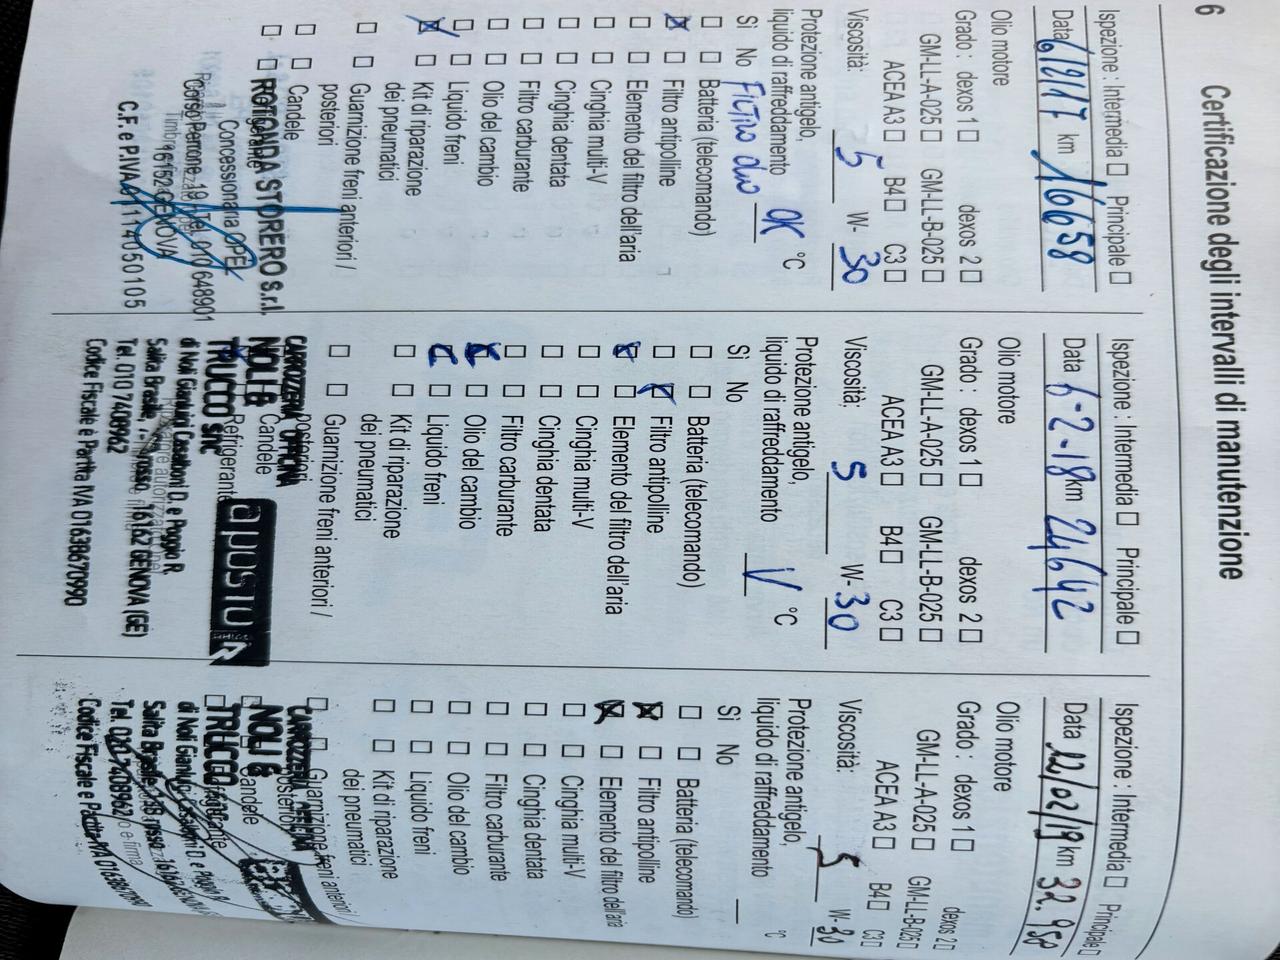 6
Certificazione degli intervalli di manutenzione
Ispezione : Intermedia □ Principale □
Data 6/2/17 km 16658
Olio motore
Grado : dexos 1 □ dexos 2 □
GM-LL-A-025 □ GM-LL-B-025 □
ACEA A3 □ B4 □ C3 □
Viscosità: 5 W- 30
Protezione antigelo,
liquido di raffreddamento OK °C
Sì No
□ □ Batteria (telecomando)
☒ □ Filtro antipolline
□ □ Elemento del filtro dell'aria
□ □ Cinghia multi-V
□ □ Cinghia dentata
□ □ Filtro carburante
□ □ Olio del cambio
□ □ Liquido freni
☒ □ Kit di riparazione
dei pneumatici
□ □ Guarnizione freni anteriori /
posteriori
□ □ Candele
□ □
ROTONDA STORERO S.r.l.
Concessionaria OPEL
Corso Perrone, 19 Tel. 010 648901
16152 GENOVA
C.F. e P.IVA 01114050105
Ispezione : Intermedia □ Principale □
Data 6-2-18 km 24642
Olio motore
Grado : dexos 1 □ dexos 2 □
GM-LL-A-025 □ GM-LL-B-025 □
ACEA A3 □ B4 □ C3 □
Viscosità: 5 W- 30
Protezione antigelo,
liquido di raffreddamento V °C
Sì No
□ □ Batteria (telecomando)
□ ☒ Filtro antipolline
☒ □ Elemento del filtro dell'aria
□ □ Cinghia multi-V
□ □ Cinghia dentata
□ □ Filtro carburante
☒ □ Olio del cambio
☒ □ Liquido freni
□ □ Kit di riparazione
dei pneumatici
□ □ Guarnizione freni anteriori /
posteriori
Candele
Refrigerante
CARROZZERIA OFFICINA
NOLI &
TRUCCO snc
di Noli Gianluigi Casattoni D. e Poggio R.
16162 GENOVA (GE)
Tel. 010 7408962
Codice Fiscale e Partita IVA 01638670990
a posto
Ispezione : Intermedia □ Principale □
Data 12/02/19 km 32.958
Olio motore
Grado : dexos 1 □ dexos 2 □
GM-LL-A-025 □ GM-LL-B-025 □
ACEA A3 □ B4 □ C3 □
Viscosità: 5 W- 30
Protezione antigelo,
liquido di raffreddamento °C
Sì No
□ □ Batteria (telecomando)
☒ □ Filtro antipolline
☒ □ Elemento del filtro dell'aria
□ □ Cinghia multi-V
□ □ Cinghia dentata
□ □ Filtro carburante
□ □ Olio del cambio
□ □ Liquido freni
□ □ Kit di riparazione
dei pneumatici
□ □ Guarnizione freni anteriori /
Candele
CARROZZERIA OFFICINA
NOLI &
TRUCCO
Tel. 010 7408962
Codice Fiscale e Partita IVA